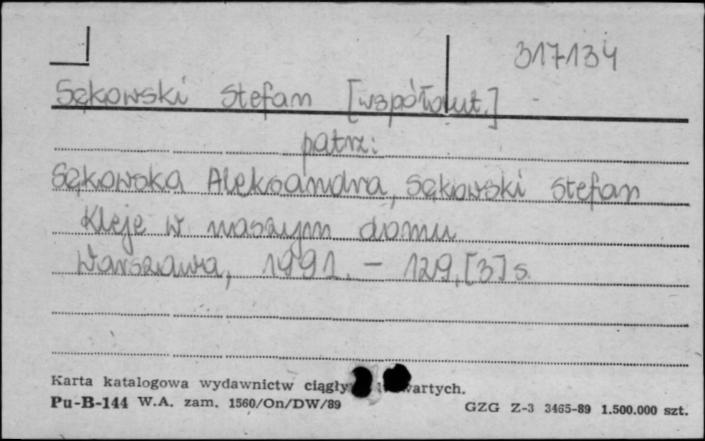 317134
Sękowski Stefan [współaut.]
patrz:
Sękowska Aleksandra, Sękowski Stefan
Kleje w naszym domu
Warszawa, 1991. – 129, [3] s.
Karta katalogowa wydawnictw ciągły wartych.
Pu-B-144 W.A. zam. 1560/On/DW/89 GZG Z-3 3465-89 1.500.000 szt.